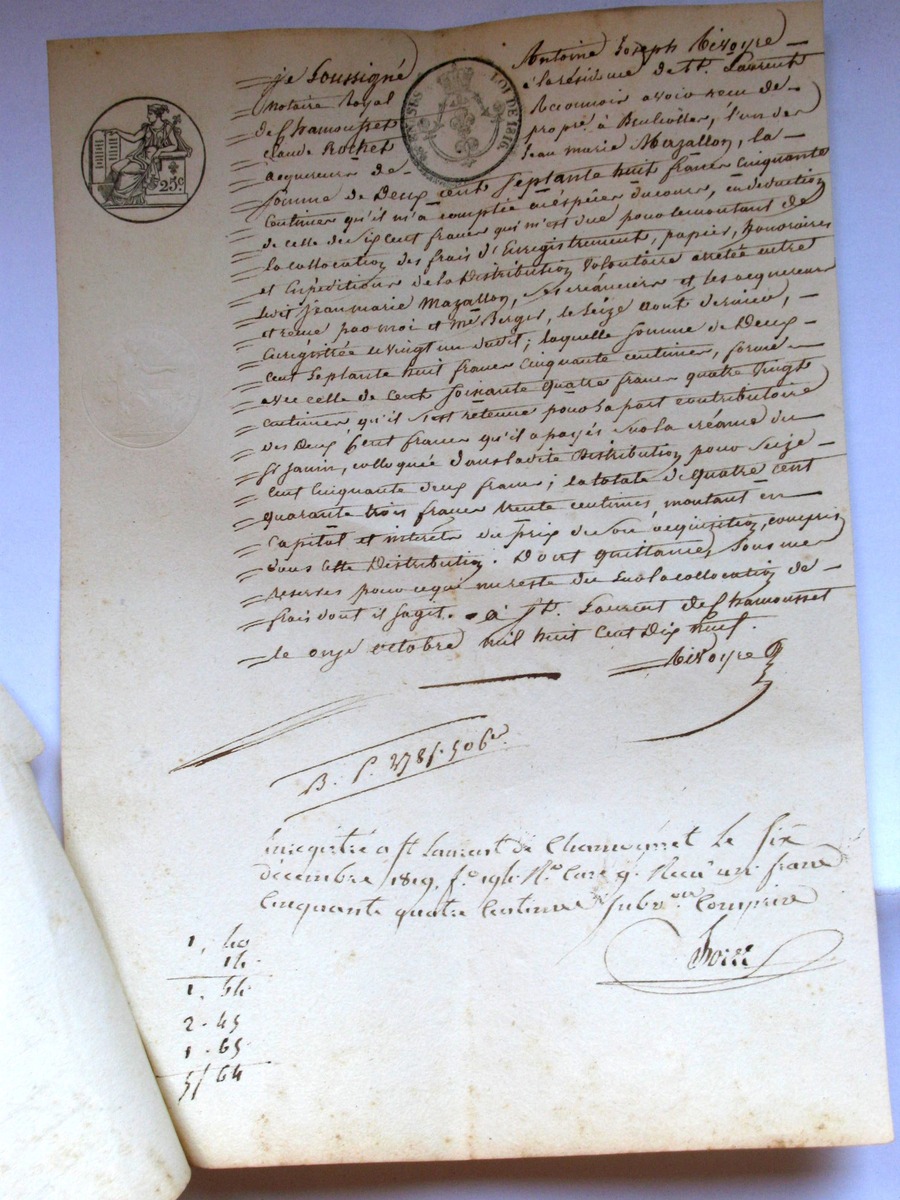 je Soussigné Antoine Joseph Rivoyre
notaire Royal à la résidence de St. Laurent
de Chamousset Reconnois avoir reçu de
Claude Rochet propre. à Brulioller, l'un des
acquereurs de Jean marie Mazallon, la
somme de Deux cent septante huit francs cinquante
centimes qu'il m'a comptée en espèces du cours, en deduction
de celle de six cent francs qui m'est due pour le montant de
la collocation des frais d'Enregistrement, papier, honoraires
et Expeditions de la Distribution volontaire arretée entre
ledit Jean marie Mazallon, ses créanciers et les acquereurs
et reçue par moi et Me Berger, le seize aout dernier,
Enregistrée le vingt un dudit; laquelle somme de Deux
cent septante huit francs cinquante centimes, forme
avec celle de cent soixante quatre francs quatre vingt
centimes qu'il s'est retenue pour sa part contributoire
des Deux cent francs qu'il a payés sur la créance du
Sr Janin, colloquée dans ladite Distribution pour seize
cent cinquante deux francs; la totale de quatre cent
quarante trois francs trente centimes, montant en
capital et intérêts du prix de son acquisition, compris
dans cette Distribution. Dont quittance, sous mes
reserves pour ce qui me reste du sur la collocation de
frais dont il s'agit. à St. Laurent de Chamousset
le onze octobre mil huit cent dix neuf.
Rivoyre
B. P. 278f. 50c
Enregistré a St Laurent de Chamousset le six
décembre 1819, fo 196 Ro Case 9. Recu un franc
Cinquante quatre Centimes subvon Comprise
1, 40
14
1, 54
2 - 45
1 - 65
5/ 64
25c
LOI DE 1816